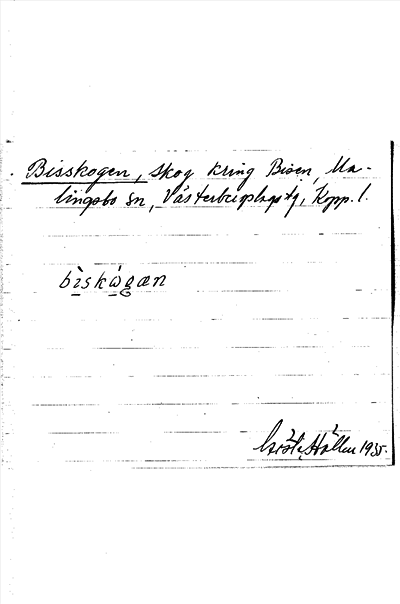 Bisskogen, skog kring Bisen, Ma-
lingsbo sn, Västerbergslags tg, Kopp. l.
bìskẁgæn
Gösta Hallen 1935.